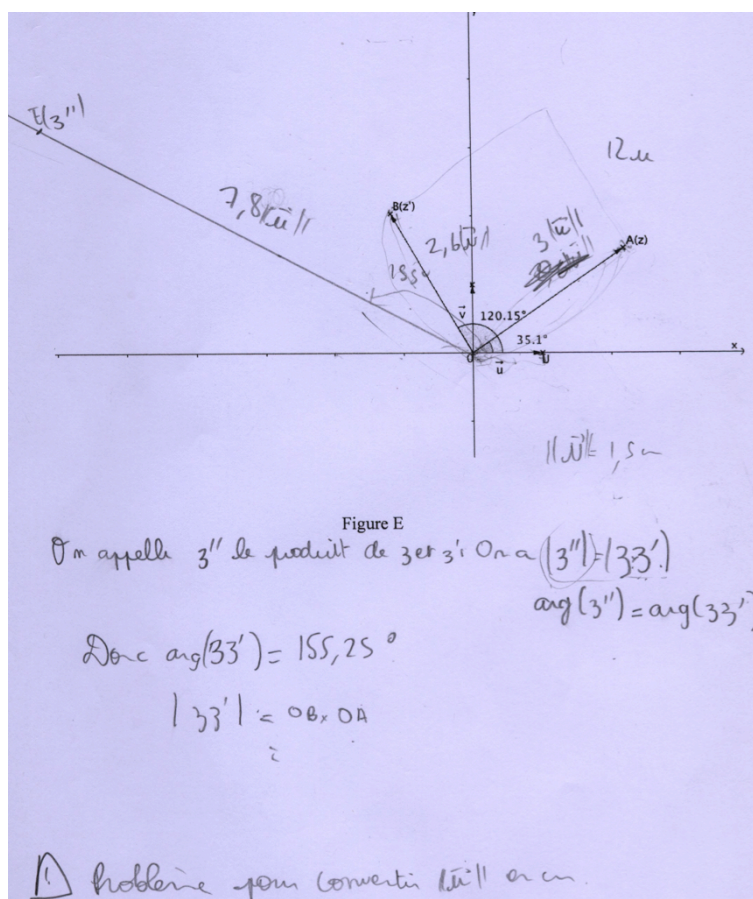 E(z'')
12 u
B(z')
7,8 ||u||
2,6 ||u||
3 ||u||
A(z)
155
v
120.15°
35.1°
x
O
u
U
||u|| = 1,5 cm
Figure E
On appelle z'' le produit de z et z'. On a |z''| = |zz'|
arg(z'') = arg(zz')
Donc arg(zz') = 155,25°
|zz'| = OB x OA
Problème pour convertir ||u|| en cm.